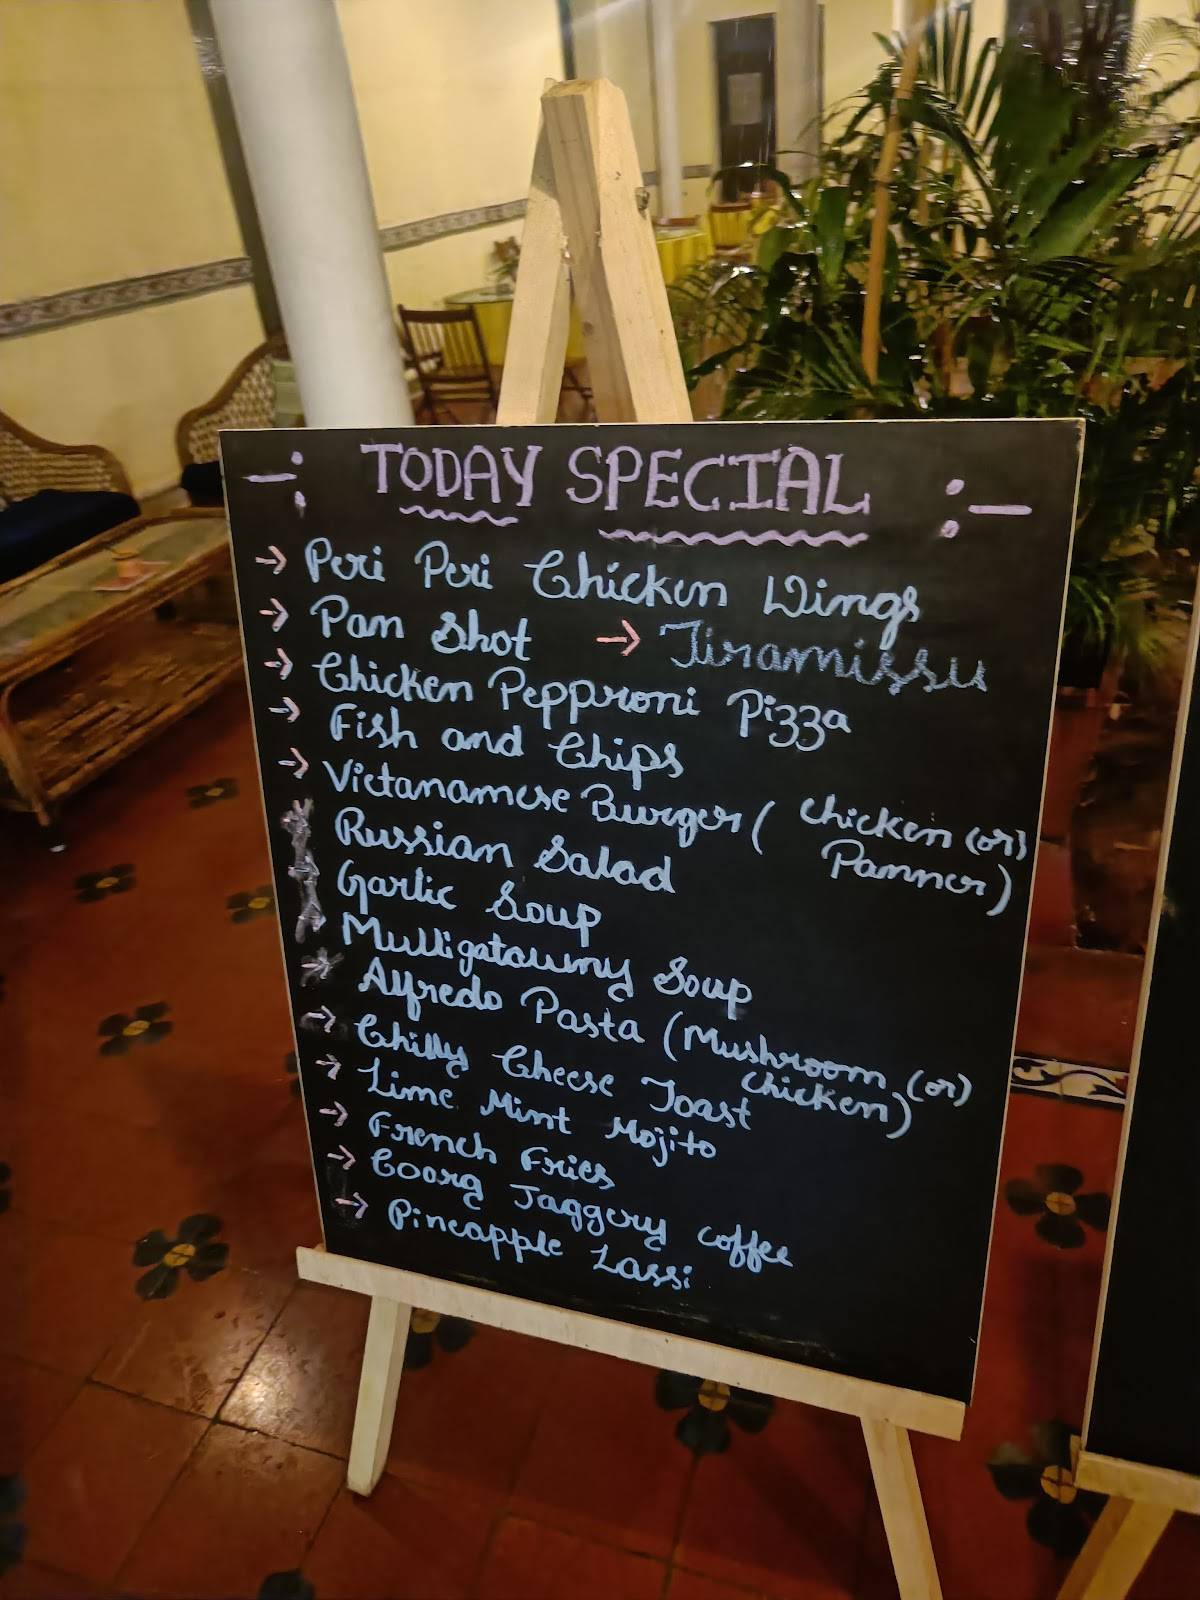 TODAY SPECIAL
→ Peri Peri Chicken Wings
→ Pan Shot → Tiramissu
→ Chicken Pepproni Pizza
→ Fish and Chips
→ Vietanamese Burger ( Chicken (or)
Panner)
Russian Salad
Garlic Soup
Mulligatawny Soup
Alfredo Pasta (Mushroom (or)
chicken)
→ Chilly Cheese Toast
→ Lime Mint Mojito
→ French Fries
→ Coorg Jaggery coffee
→ Pineapple Lassi